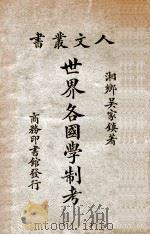 人文叢書
湘鄉吴家鎮著
世界各國學制考
商務印書館發行